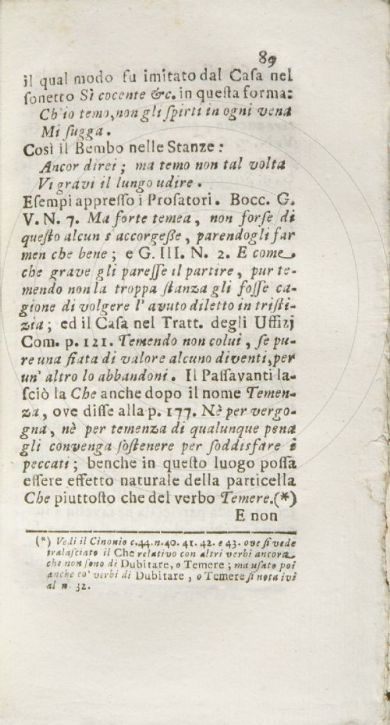 89
il qual modo fu imitato dal Caſa nel
ſonetto Sì cocente &c. in queſta forma:
Ch'io temo, non gli ſpirti in ogni vena
Mi ſugga.
Così il Bembo nelle Stanze:
Ancor direi; ma temo non tal volta
Vi gravi il lungo udire.
Eſempi appreſſo i Proſatori. Bocc. G.
V. N. 7. Ma forte temea, non forſe di
queſto alcun s'accorgeſſe, parendogli far
men che bene; e G. III. N. 2. E come
che grave gli pareſſe il partire, pur te-
mendo non la troppa ſtanza gli foſſe ca-
gione di volgere l'avuto diletto in triſti-
zia; ed il Caſa nel Tratt. degli Uffizj
Com. p. 121. Temendo non colui, ſe pu-
re una fiata di valore alcuno diventi, per
un'altro lo abbandoni. Il Paſſavanti la-
ſciò la Che anche dopo il nome Temen-
za, ove diſſe alla p. 177. Nè per vergo-
gna, nè per temenza di qualunque pena
gli convenga ſoſtenere per ſoddisfare i
peccati; benche in queſto luogo poſſa
eſſere effetto naturale della particella
Che piuttoſto che del verbo Temere.(*)
E non
(*) Vedi il Cinonio c.44. n.40. 41. 42. e 43. ove ſi vede
tralaſciato il Che relativo con altri verbi ancora
che non ſono di Dubitare, o Temere; ma uſato poi
anche co' verbi di Dubitare, o Temere ſi nota ivi
al n. 32.